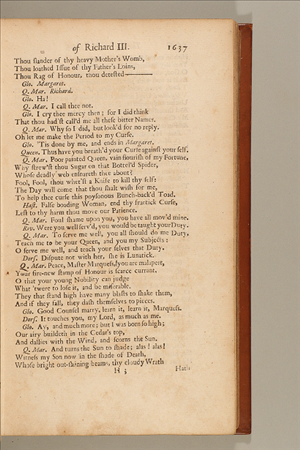 of Richard III. 1637
Thou slander of thy heavy Mother's Womb,
Thou loathed Issue of thy Father's Loins,
Thou Rag of Honour, thou detested———
Glo. Margaret.
Q. Mar. Richard.
Glo. Ha!
Q. Mar. I call thee not.
Glo. I cry thee mercy then; for I did think
That thou had'st call'd me all these bitter Names.
Q. Mar. Why so I did, but look'd for no reply.
Oh let me make the Period to my Curse.
Glo. 'Tis done by me, and ends in Margaret.
Queen. Thus have you breath'd your Curse against your self.
Q. Mar. Poor painted Queen, vain flourish of my Fortune,
Why strew'st thou Sugar on that Bottel'd Spider,
Whose deadly web ensnareth thee about?
Fool, Fool, thou whet'st a Knife to kill thy self:
The Day will come that thou shalt wish for me,
To help thee curse this poysonous Bunch-back'd Toad.
Hast. False boading Woman, end thy frantick Curse,
Lest to thy harm thou move our Patience.
Q. Mar. Foul shame upon you, you have all mov'd mine.
Riv. Were you well serv'd, you would be taught your Duty.
Q. Mar. To serve me well, you all should do me Duty,
Teach me to be your Queen, and you my Subjects:
O serve me well, and teach your selves that Duty.
Dors. Dispute not with her, she is Lunatick.
Q. Mar. Peace, Master Marquess, you are malapert,
Your fire-new stamp of Honour is scarce currant.
O that your young Nobility can judge
What 'twere to lose it, and be miserable.
They that stand high have many blasts to shake them,
And if they fall, they dash themselves to pieces.
Glo. Good Counsel marry, learn it, learn it, Marquess.
Dors. It touches you, my Lord, as much as me.
Glo. Ay, and much more; but I was born so high:
Our airy buildeth in the Cedar's top,
And dallies with the Wind, and scorns the Sun.
Q. Mar. And turns the Sun to shade; alas! alas!
Witness my Son now in the shade of Death,
Whose bright out-shining beams, thy cloudy Wrath
H 3 Hath